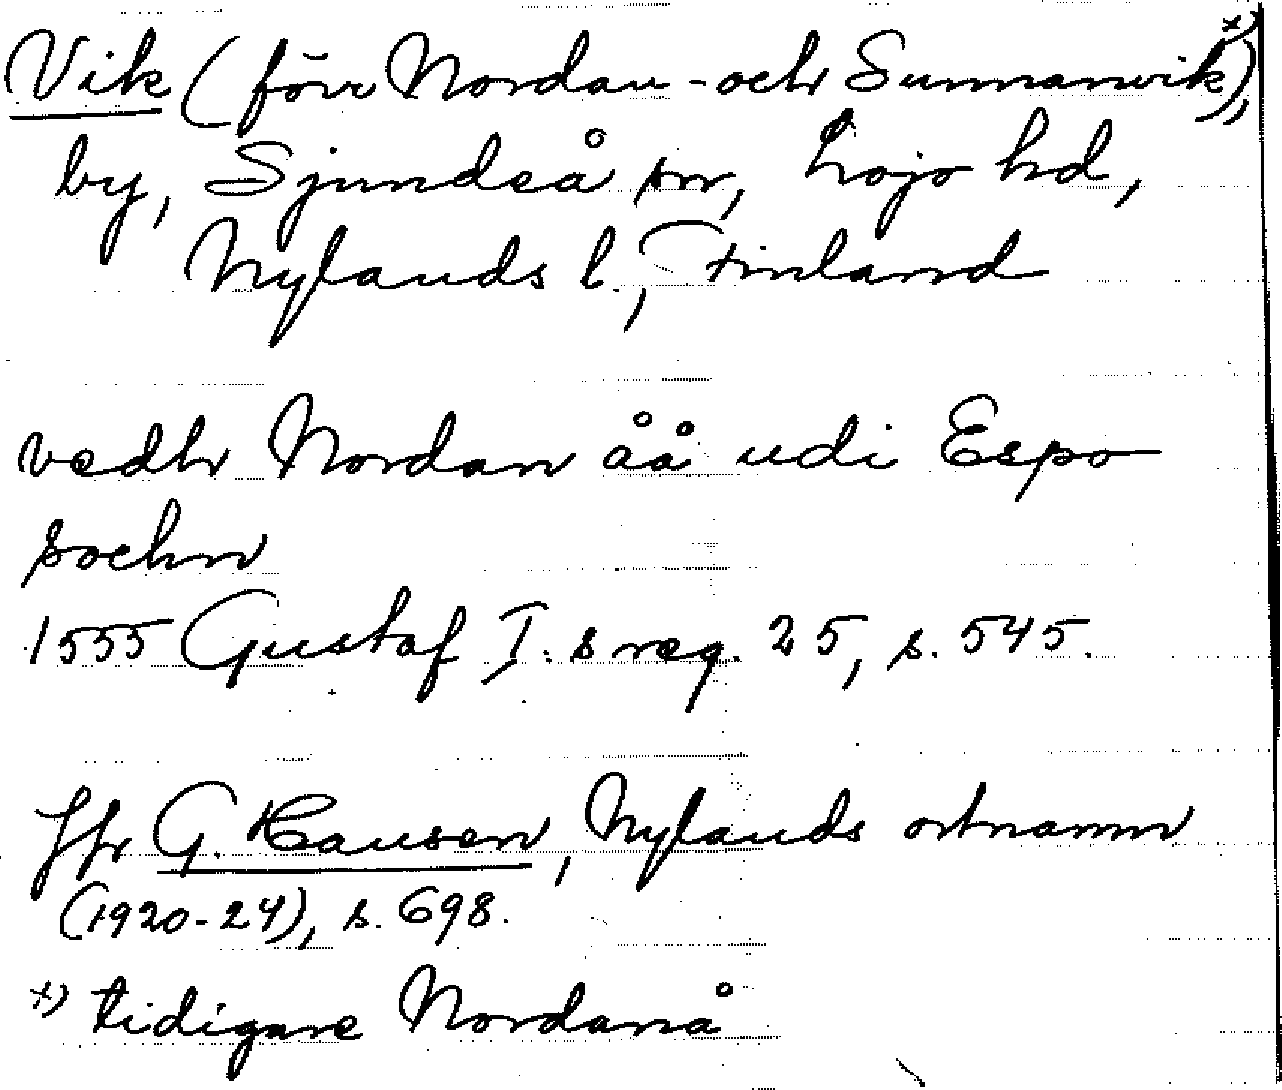 Vik (förr Nordan- och Sunnanvik x)),
by, Sjundeå sn, Lojo hd,
Nylands l., Finland
vedh Nordan åå udi Espo
sochn
1555 Gustaf I:s reg. 25, s. 545.
Jfr G. Hausen, Nylands ortnamn
(1920-24), s. 698.
x) tidigare Nordanå